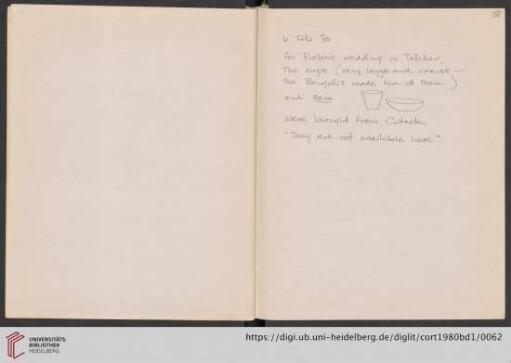 58
6 Feb 80
for Prabin's wedding in Talcher,
the cups (very large and coarse —
the Bengalis made fun of them)
and sara
were brought from Cuttack
"They are not available here"
UNIVERSITÄTS-
BIBLIOTHEK
HEIDELBERG
https://digi.ub.uni-heidelberg.de/diglit/cort1980bd1/0062